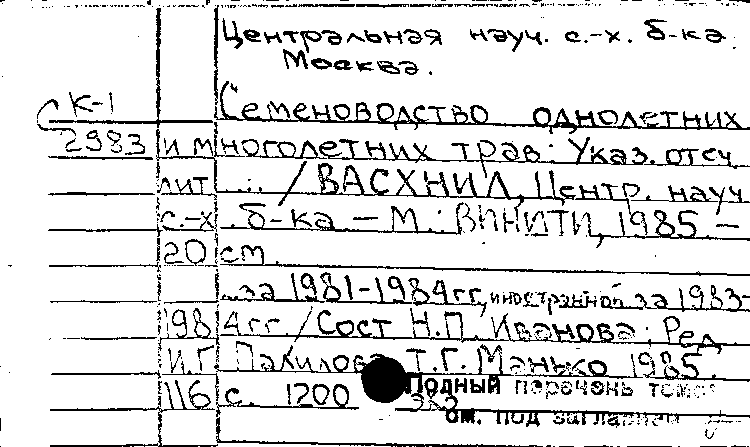 Центральная науч. с.-х. б-ка.
Москва.
К-1
Семеноводство однолетних
2983 и многолетних трав: Указ. отеч
лит ... / ВАСХНИЛ, Центр. науч
с.-х. б-ка — М.: ВИНИТИ, 1985. —
20 см.
...за 1981-1984гг, иностранной за 1983-
1984гг. / Сост Н.П. Иванова; Ред
И.Г. Т.Г. Манько 1985.
116 с. 1200 экз
Полный перечень
см. под заглавием